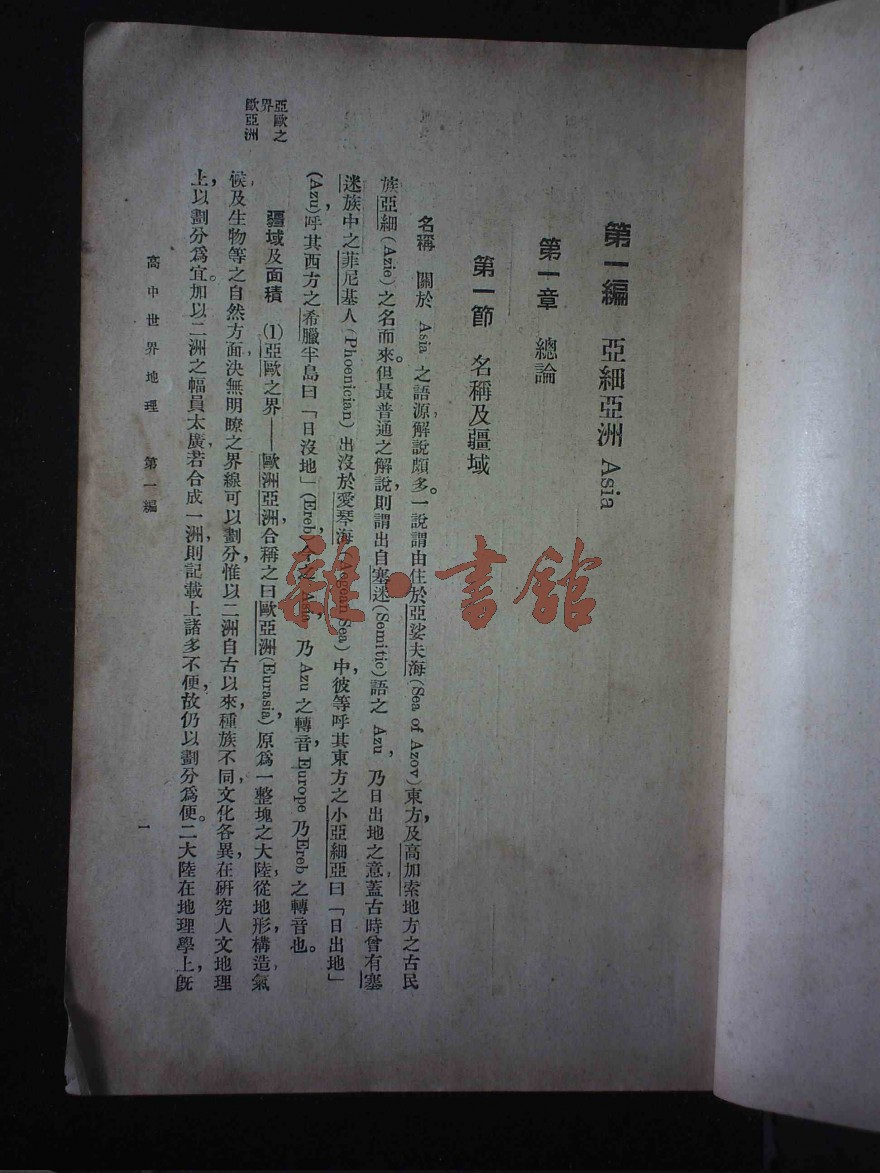 第一編 亞細亞洲 Asia
第一章 總論
第一節 名稱及疆域
名稱 關於 Asia 之語源，解說頗多。一說謂由住於亞娑夫海(Sea of Azov)東方及高加索地方之古民
族亞細(Azie)之名而來。但最普通之解說，則謂出自塞迷(Semitic)語之 Azu，乃日出地之意，蓋古時曾有塞
迷族中之菲尼基人(Phoenician)出沒於愛琴海(Aegean Sea)中，彼等呼其東方之小亞細亞曰「日出地」
(Azu)，呼其西方之希臘半島曰「日沒地」(Ereb)，今之 Asia，乃 Azu 之轉音，Europe 乃Ereb 之轉音也。
亞歐之界歐亞洲
疆域及面積 (1)亞歐之界——歐洲亞洲，合稱之曰歐亞洲(Eurasia)，原爲一整塊之大陸，從地形，構造，氣
候及生物等之自然方面，決無明瞭之界線可以劃分，惟以二洲自古以來，種族不同，文化各異，在研究人文地理
上，以劃分爲宜。加以二洲之幅員太廣，若合成一洲，則記載上諸多不便，故仍以劃分爲便。二大陸在地理學上，旣
高中世界地理 第一編
一
雜·書館